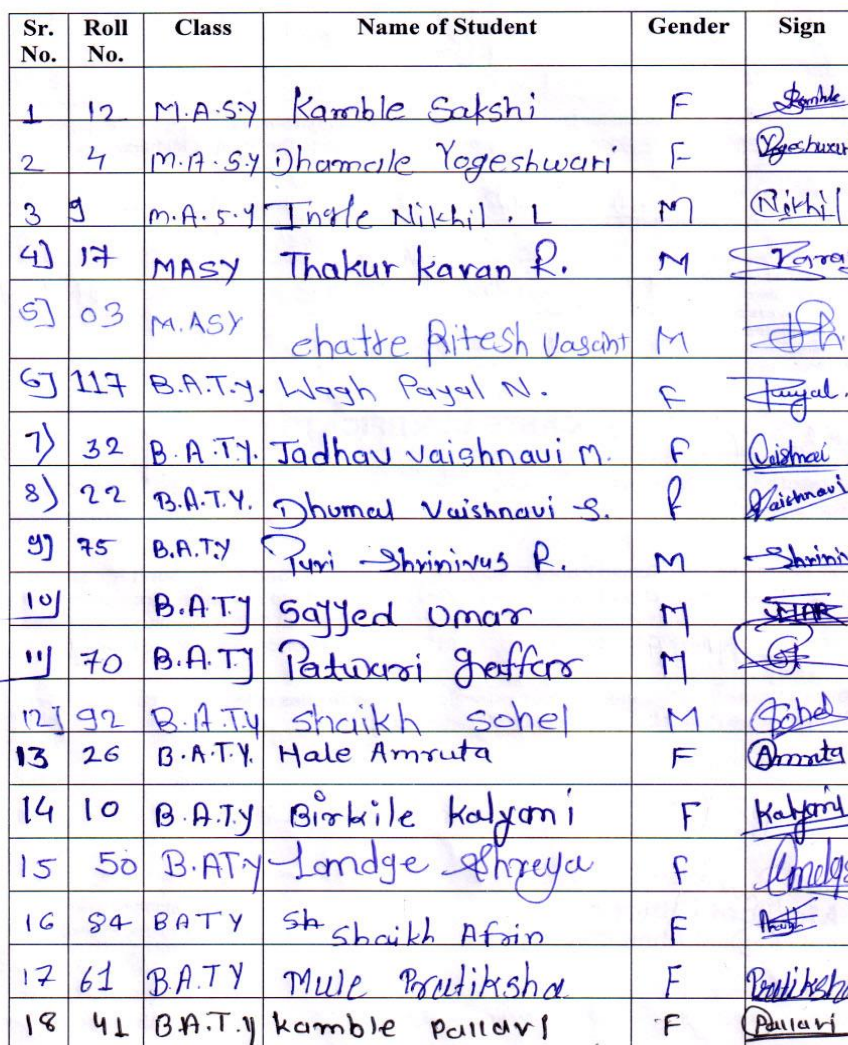 Sr. No. Roll No. Class Name of Student Gender Sign
1 12 M.A.S.Y Kamble Sakshi F Kamble
2 4 M.A.S.Y Dhamale Yogeshwari F Yogeshwari
3 9 M.A.S.Y Ingle Nikhil . L M Nikhil
4] 17 MASY Thakur Karan R. M
5] 03 M.ASY chatre Ritesh Vasant M
6] 117 B.A.T.y. Wagh Payal N. F Payal.
7) 32 B.A.T.Y. Jadhav vaishnavi M. F Vaishnavi
8) 22 B.A.T.Y. Dhumal Vaishnavi S. F Vaishnavi
9] 75 B.A.T.Y Puri Shrinivas R. M Shriniv
10] B.A.T.Y Sayyed Umar M UMAR
11] 70 B.A.T.Y Patwari Gaffar M
12] 92 B.A.T.Y shaikh sohel M Sohel
13 26 B.A.T.Y. Hale Amruta F Amruta
14 10 B.A.T.Y Birkile Kalyani F Kalyani
15 50 B.A.T.Y Lamdge Shreya F Lamdge
16 84 BATY Sh Shaikh Afrin F
17 61 B.A.T.Y Mule Pratiksha F Pratiksha
18 41 B.A.T.y kamble pallavi F Pallavi